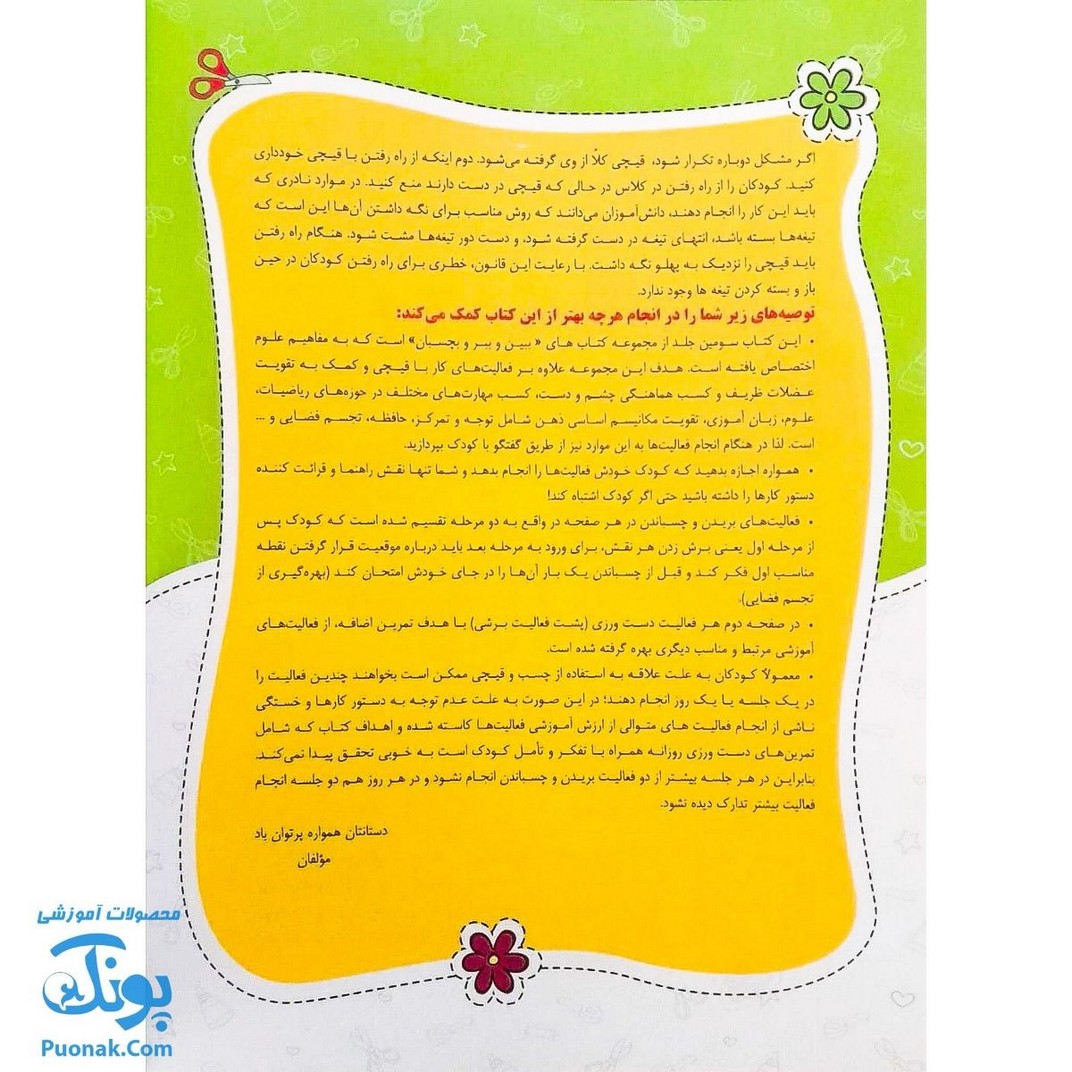 اگر مشکل دوباره تکرار شود، قیچی کلاً از وی گرفته می‌شود. دوم اینکه از راه رفتن با قیچی خودداری
کنید. کودکان را از راه رفتن در کلاس در حالی که قیچی در دست دارند منع کنید. در موارد نادری که
باید این کار را انجام دهند، دانش‌آموزان می‌دانند که روش مناسب برای نگه داشتن آن‌ها این است که
تیغه‌ها بسته باشد، انتهای تیغه در دست گرفته شود، و دست دور تیغه‌ها مشت شود. هنگام راه رفتن
باید قیچی را نزدیک به پهلو نگه داشت. با رعایت این قانون، خطری برای راه رفتن کودکان در حین
باز و بسته کردن تیغه ها وجود ندارد.
توصیه‌های زیر شما را در انجام هرچه بهتر از این کتاب کمک می‌کند:
• این کتاب سومین جلد از مجموعه کتاب های « ببین و ببر و بچسبان» است که به مفاهیم علوم
اختصاص یافته است. هدف این مجموعه علاوه بر فعالیت‌های کار با قیچی و کمک به تقویت
عضلات ظریف و کسب هماهنگی چشم و دست، کسب مهارت‌های مختلف در حوزه‌های ریاضیات،
علوم، زبان آموزی، تقویت مکانیسم اساسی ذهن شامل توجه و تمرکز، حافظه، تجسم فضایی و ...
است. لذا در هنگام انجام فعالیت‌ها به این موارد نیز از طریق گفتگو با کودک بپردازید.
• همواره اجازه بدهید که کودک خودش فعالیت‌ها را انجام بدهد و شما تنها نقش راهنما و قرائت کننده
دستور کارها را داشته باشید حتی اگر کودک اشتباه کند!
• فعالیت‌های بریدن و چسباندن در هر صفحه در واقع به دو مرحله تقسیم شده است که کودک پس
از مرحله اول یعنی برش زدن هر نقش، برای ورود به مرحله بعد باید درباره موقعیت قرار گرفتن نقطه
مناسب اول فکر کند و قبل از چسباندن یک بار آن‌ها را در جای خودش امتحان کند (بهره‌گیری از
تجسم فضایی).
• در صفحه دوم هر فعالیت دست ورزی (پشت فعالیت برشی) با هدف تمرین اضافه، از فعالیت‌های
آموزشی مرتبط و مناسب دیگری بهره گرفته شده است.
• معمولاً کودکان به علت علاقه به استفاده از چسب و قیچی ممکن است بخواهند چندین فعالیت را
در یک جلسه یا یک روز انجام دهند؛ در این صورت به علت عدم توجه به دستور کارها و خستگی
ناشی از انجام فعالیت های متوالی از ارزش آموزشی فعالیت‌ها کاسته شده و اهداف کتاب که شامل
تمرین‌های دست ورزی روزانه همراه با تفکر و تأمل کودک است به خوبی تحقق پیدا نمی‌کند.
بنابراین در هر جلسه بیشتر از دو فعالیت بریدن و چسباندن انجام نشود و در هر روز هم دو جلسه انجام
فعالیت بیشتر تدارک دیده نشود.
دستانتان همواره پرتوان باد
مؤلفان
محصولات آموزشی
پونک
Puonak.Com